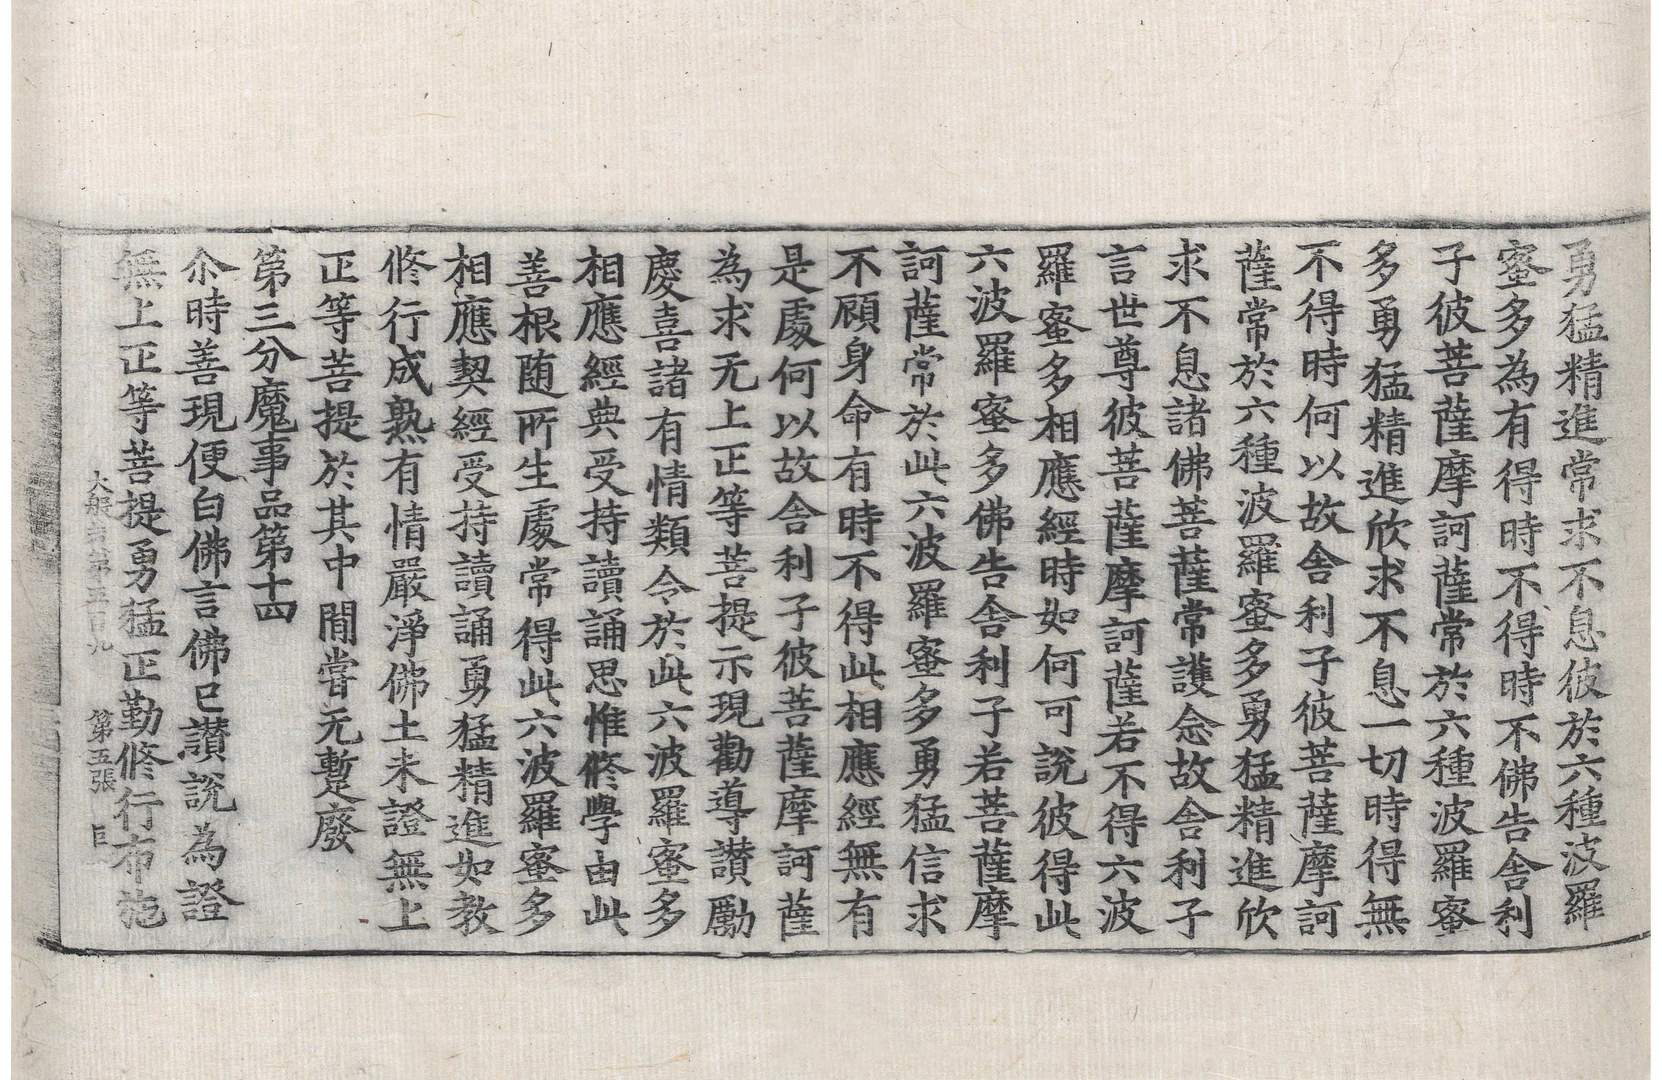 勇猛精進常求不息彼於六種波羅
蜜多為有得時不得時不佛告舎利
子彼菩薩摩訶薩常於六種波羅蜜
多勇猛精進欣求不息一切時得無
不得時何以故舎利子彼菩薩摩訶
薩常於六種波羅蜜多勇猛精進欣
求不息諸佛菩薩常護念故舎利子
言世尊彼菩薩摩訶薩若不得六波
羅蜜多相應經時如何可說彼得此
六波羅蜜多佛告舎利子若菩薩摩
訶薩常於此六波羅蜜多勇猛信求
不顧身命有時不得此相應經無有
是處何以故舎利子彼菩薩摩訶薩
為求无上正等菩提示現勸導讃勵
慶喜諸有情類令於此六波羅蜜多
相應經典受持讀誦思惟修學由此
善根随所生處常得此六波羅蜜多
相應契經受持讀誦勇猛精進如教
修行成熟有情嚴淨佛土未證無上
正等菩提於其中閒嘗无蹔廢
第三分魔事品第十四
尒時善現便白佛言佛已讃說為證
無上正等菩提勇猛正勤修行布施
大般若第五百九　第五張